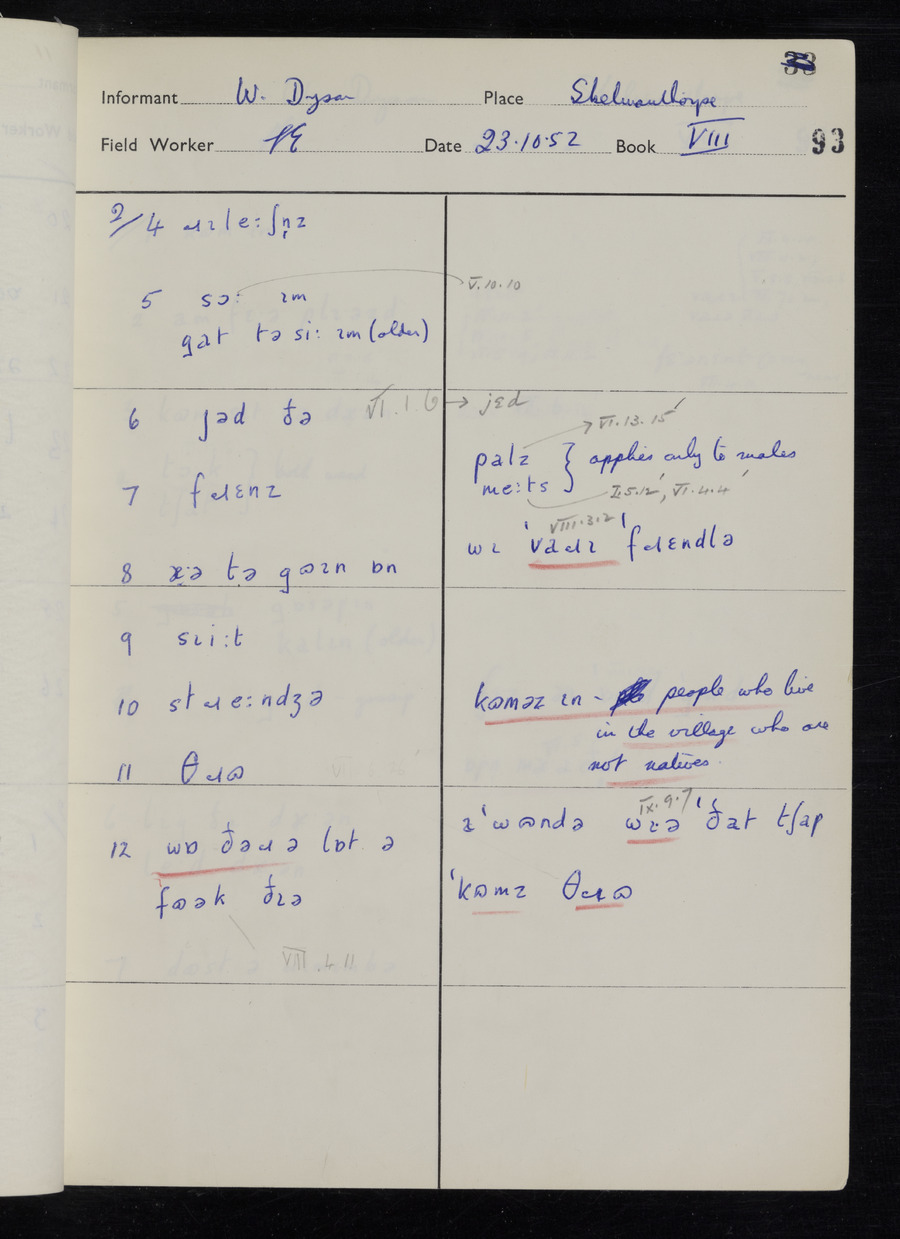 33
Informant W. Dyson Place Skelmanthorpe
Field Worker PE Date 23.10.52 Book VIII 93
2/4 ɹɪleːʃn̩z
5 sɔː ɪm V.10.10
gat tə siː ɪm (older)
6 jəd ðə VI.1.6 → jɛd
VI.13.15'
palz } applies only to males
7 fɹɛnz meːts
I.5.12', VI.4.4'
VIII.3.2
wɪ 'vaɹɪ 'fɹɛndlə
8 tə gɷɪn ɒn
9 sɪiːt
10 stɹeːndʒə kɷməz ɪn - people who live
in the village who are
not natives.
11 θɹɷ
IX.9.7
12 wɒ ðəɹ ə lɒt ə ɪ'wɷndə wɪə 'ðat tʃap
fɷək ðɪə 'kɷmz θɹɷ
VIII.4.11